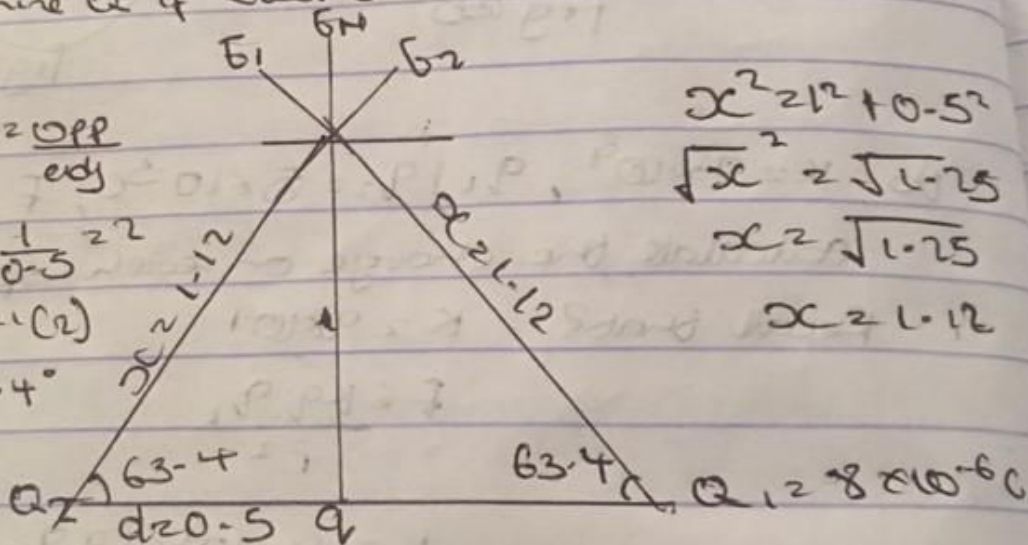 EN
E1 E2
= opp
adj
1
0.5 = 2
-1 (2)
.4°
x = 1.12
x = 1.12
1
63.4
63.4
Q2
d=0.5
q
Q1 = 8 x10^-6 C
x² = 1² + 0.5²
√x² = √1.25
x = √1.25
x = 1.12